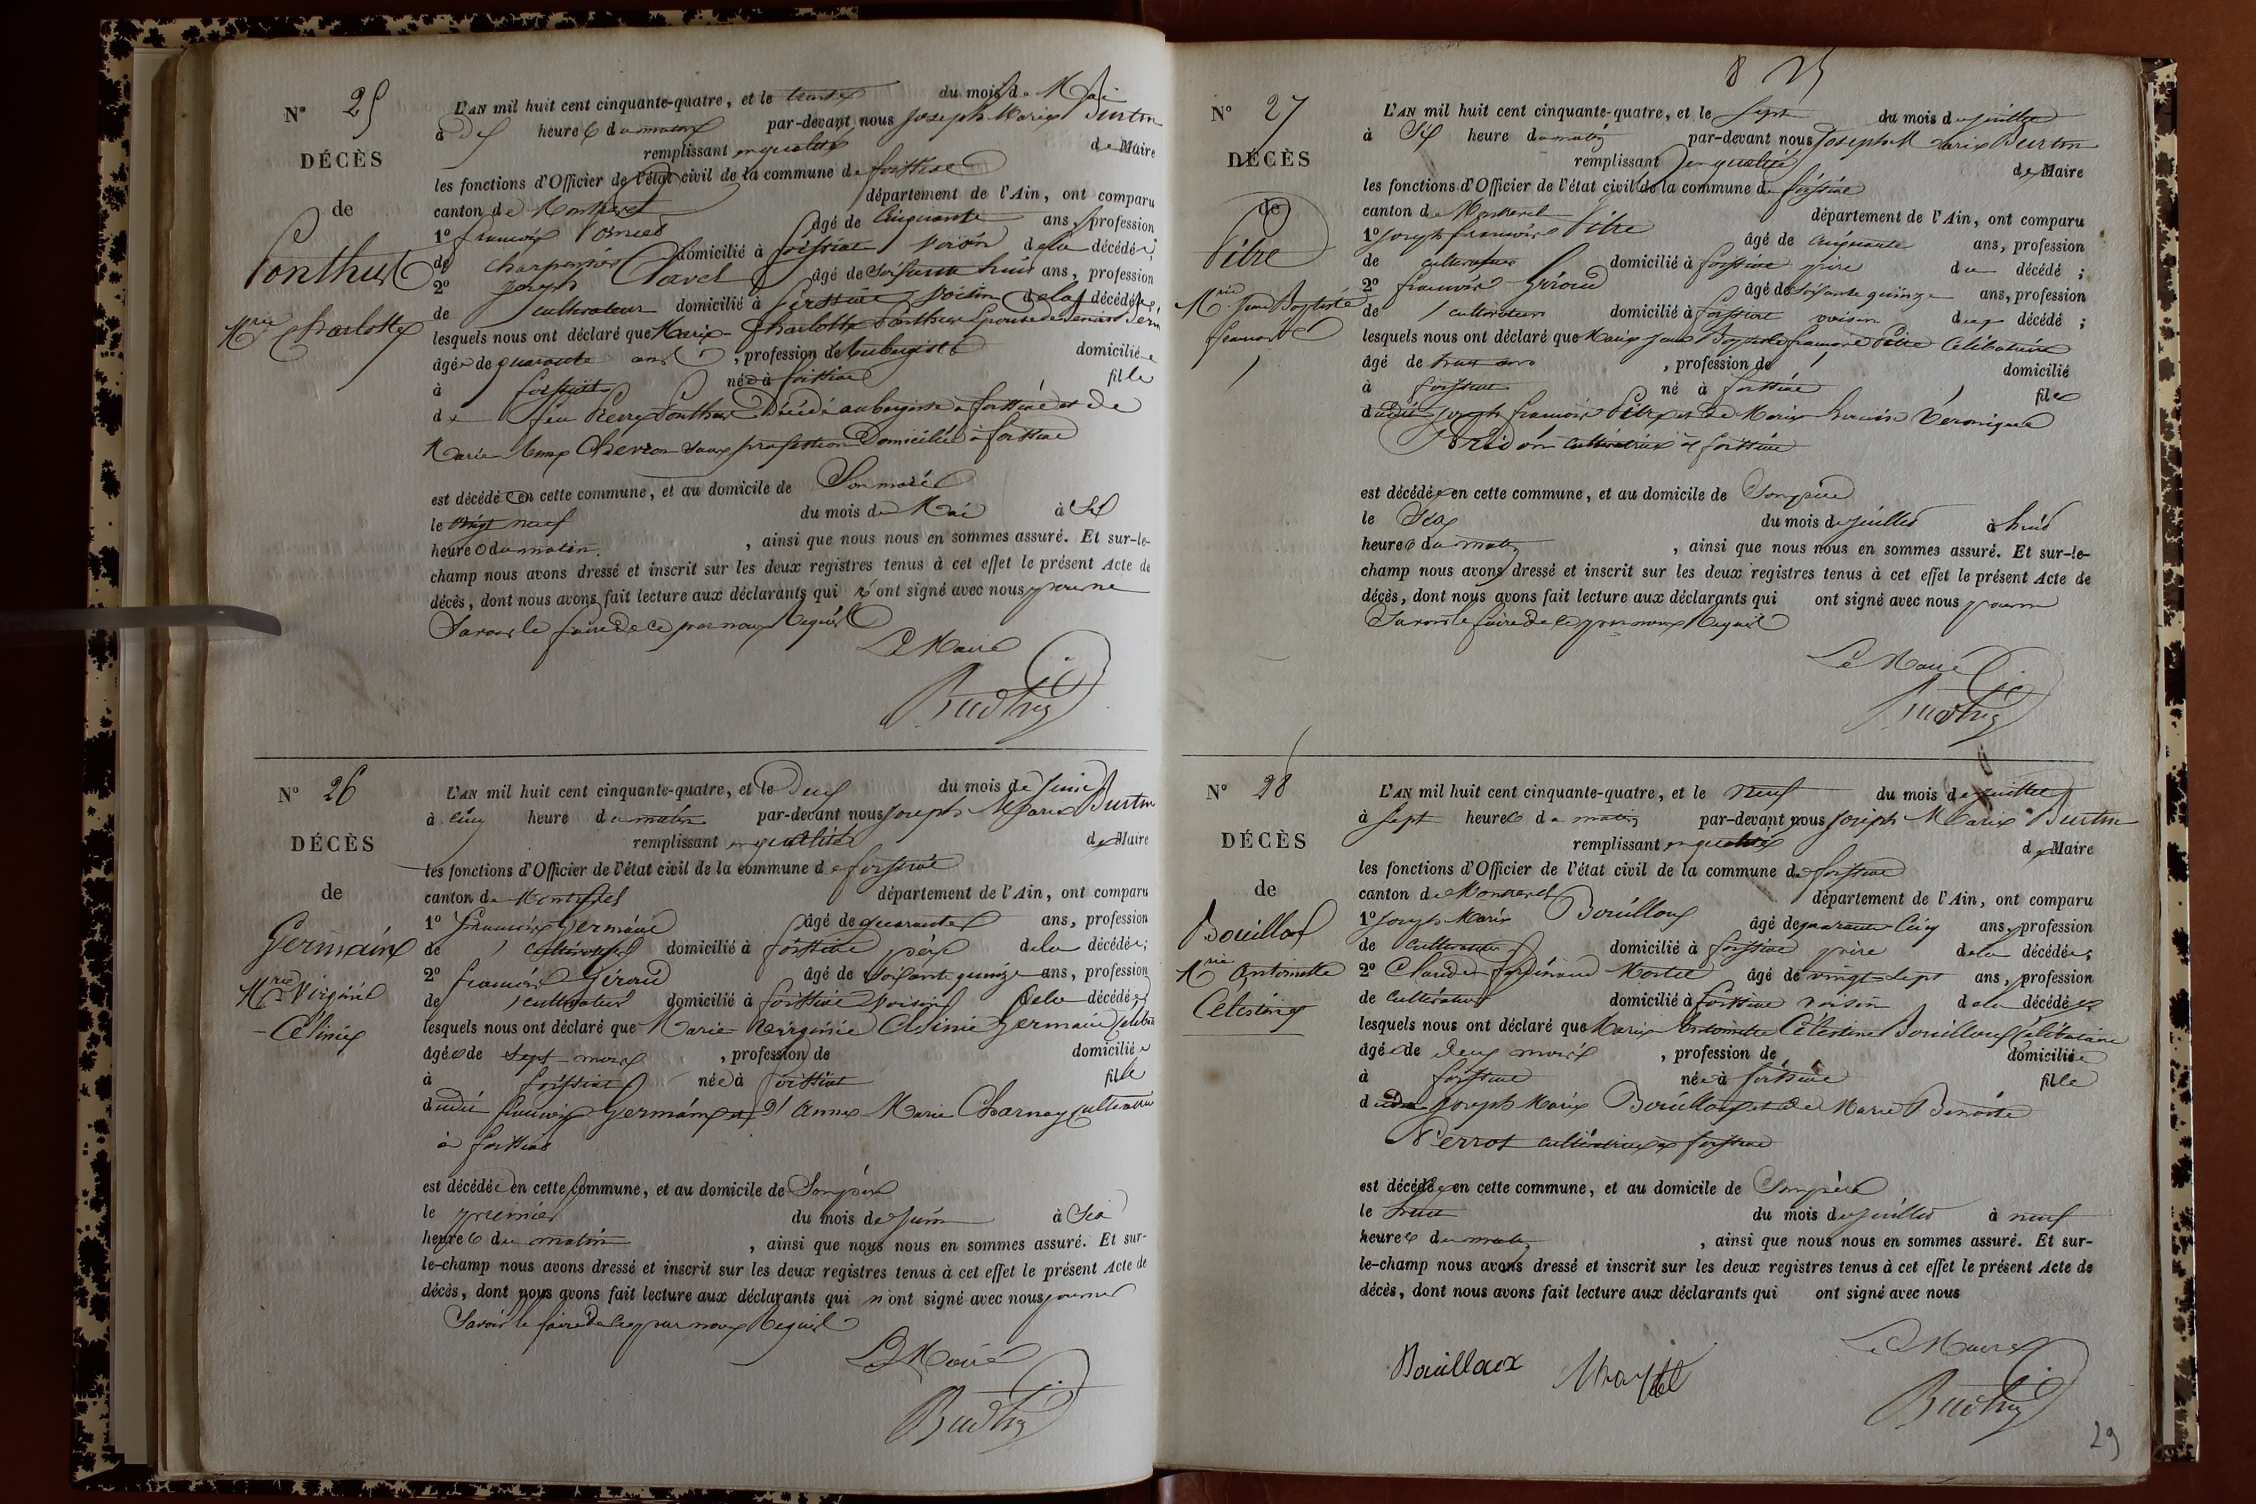 N° 25
DÉCÈS
de
Ponthus
Mrie Charlotte
L'AN mil huit cent cinquante-quatre, et le trente du mois de Mai
à heures du matin par-devant nous Joseph Marie Burtin
remplissant en qualité de Maire
les fonctions d'Officier de l'état civil de la commune de foissiat
canton de Montrevel département de l'Ain, ont comparu
1° francois âgé de Cinquante ans, profession
de charpentier domicilié à foissiat voisin de la décédée;
2° joseph Clavel âgé de soixante huit ans, profession
de cultivateur domicilié à foissiat voisin de la décédée;
lesquels nous ont déclaré que Marie Charlotte Ponthus Epouse de
âgée de quarante ans, profession de aubergiste domiciliée
à foissiat née à foissiat fille
de feu Ponthus Décédé aubergiste à foissiat et de
Marie Chevron sans profession Domiciliée à foissiat
est décédée en cette commune, et au domicile de Son mari
le vingt neuf du mois de Mai à
heures du matin, ainsi que nous nous en sommes assuré. Et sur-le-
champ nous avons dressé et inscrit sur les deux registres tenus à cet effet le présent Acte de
décès, dont nous avons fait lecture aux déclarants qui n'ont signé avec nous pour ne
Savoir le faire de ce par nous Requis
Le Maire
Burtin
N° 26
DÉCÈS
de
Germain
Mrie Virginie
Celinie
L'AN mil huit cent cinquante-quatre, et le Deux du mois de Juin
à cinq heure du matin par-devant nous Joseph Marie Burtin
remplissant en qualité de Maire
les fonctions d'Officier de l'état civil de la commune de foissiat
canton de Montrevel département de l'Ain, ont comparu
1° francois Germain âgé de quarante ans, profession
de cultivateur domicilié à foissiat père de la décédée;
2° francois Giroud âgé de soixante quinze ans, profession
de cultivateur domicilié à foissiat voisin de la décédée;
lesquels nous ont déclaré que Marie Virginie Celinie Germain
âgée de sept mois, profession de domiciliée
à foissiat née à foissiat fille
dudit francois Germain et d'Anne Marie Charnay
à foissiat
est décédée en cette commune, et au domicile de Son père
le premier du mois de juin à Six
heures du matin, ainsi que nous nous en sommes assuré. Et sur-
le-champ nous avons dressé et inscrit sur les deux registres tenus à cet effet le présent Acte de
décès, dont nous avons fait lecture aux déclarants qui n'ont signé avec nous pour ne
Savoir le faire de ce par nous Requis
Le Maire
Burtin
N° 27
DÉCÈS
de
Pitre
Mrie Jean Baptiste
francois
L'AN mil huit cent cinquante-quatre, et le sept du mois de juillet
à Six heure du matin par-devant nous Joseph Marie Burtin
remplissant en qualité de Maire
les fonctions d'Officier de l'état civil de la commune de foissiat
canton de Montrevel département de l'Ain, ont comparu
1° Joseph francois Pitre âgé de cinquante ans, profession
de cultivateur domicilié à foissiat père du décédé;
2° francois Giroud âgé de soixante quinze ans, profession
de cultivateur domicilié à foissiat voisin du décédé;
lesquels nous ont déclaré que Marie Jean Baptiste francois Pitre Célibataire
âgé de ans, profession de domicilié
à foissiat né à foissiat fils
dudit joseph francois Pitre et de Marie Veronique
cultivatrice à foissiat
est décédé en cette commune, et au domicile de Son père
le Six du mois de juillet à huit
heures du matin, ainsi que nous nous en sommes assuré. Et sur-le-
champ nous avons dressé et inscrit sur les deux registres tenus à cet effet le présent Acte de
décès, dont nous avons fait lecture aux déclarants qui ont signé avec nous pour ne
Savoir le faire de ce par nous Requis
Le Maire
Burtin
N° 28
DÉCÈS
de
Bouilloux
Mrie Antoinette
Celestine
L'AN mil huit cent cinquante-quatre, et le neuf du mois de juillet
à sept heures du matin par-devant nous joseph Marie Burtin
remplissant en qualité de Maire
les fonctions d'Officier de l'état civil de la commune de foissiat
canton de Montrevel département de l'Ain, ont comparu
1° joseph Marie Bouilloux âgé de quarante cinq ans, profession
de cultivateur domicilié à foissiat père de la décédée;
2° Claude ferdinand âgé de vingt sept ans, profession
de cultivateur domicilié à foissiat voisin de la décédée;
lesquels nous ont déclaré que Marie Antoinette Célestine Bouilloux Célibataire
âgée de deux mois, profession de domiciliée
à foissiat née à foissiat fille
dudit joseph Marie Bouilloux et de Marie Benoite
Perrot cultivatrice à foissiat
est décédée en cette commune, et au domicile de Son père
le huit du mois de juillet à neuf
heures du matin, ainsi que nous nous en sommes assuré. Et sur-
le-champ nous avons dressé et inscrit sur les deux registres tenus à cet effet le présent Acte de
décès, dont nous avons fait lecture aux déclarants qui ont signé avec nous
Le Maire
Bouilloux
Burtin
29